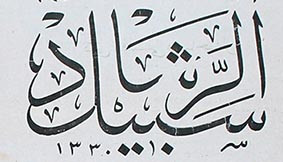 سبيل الرشاد
١٣٣٠